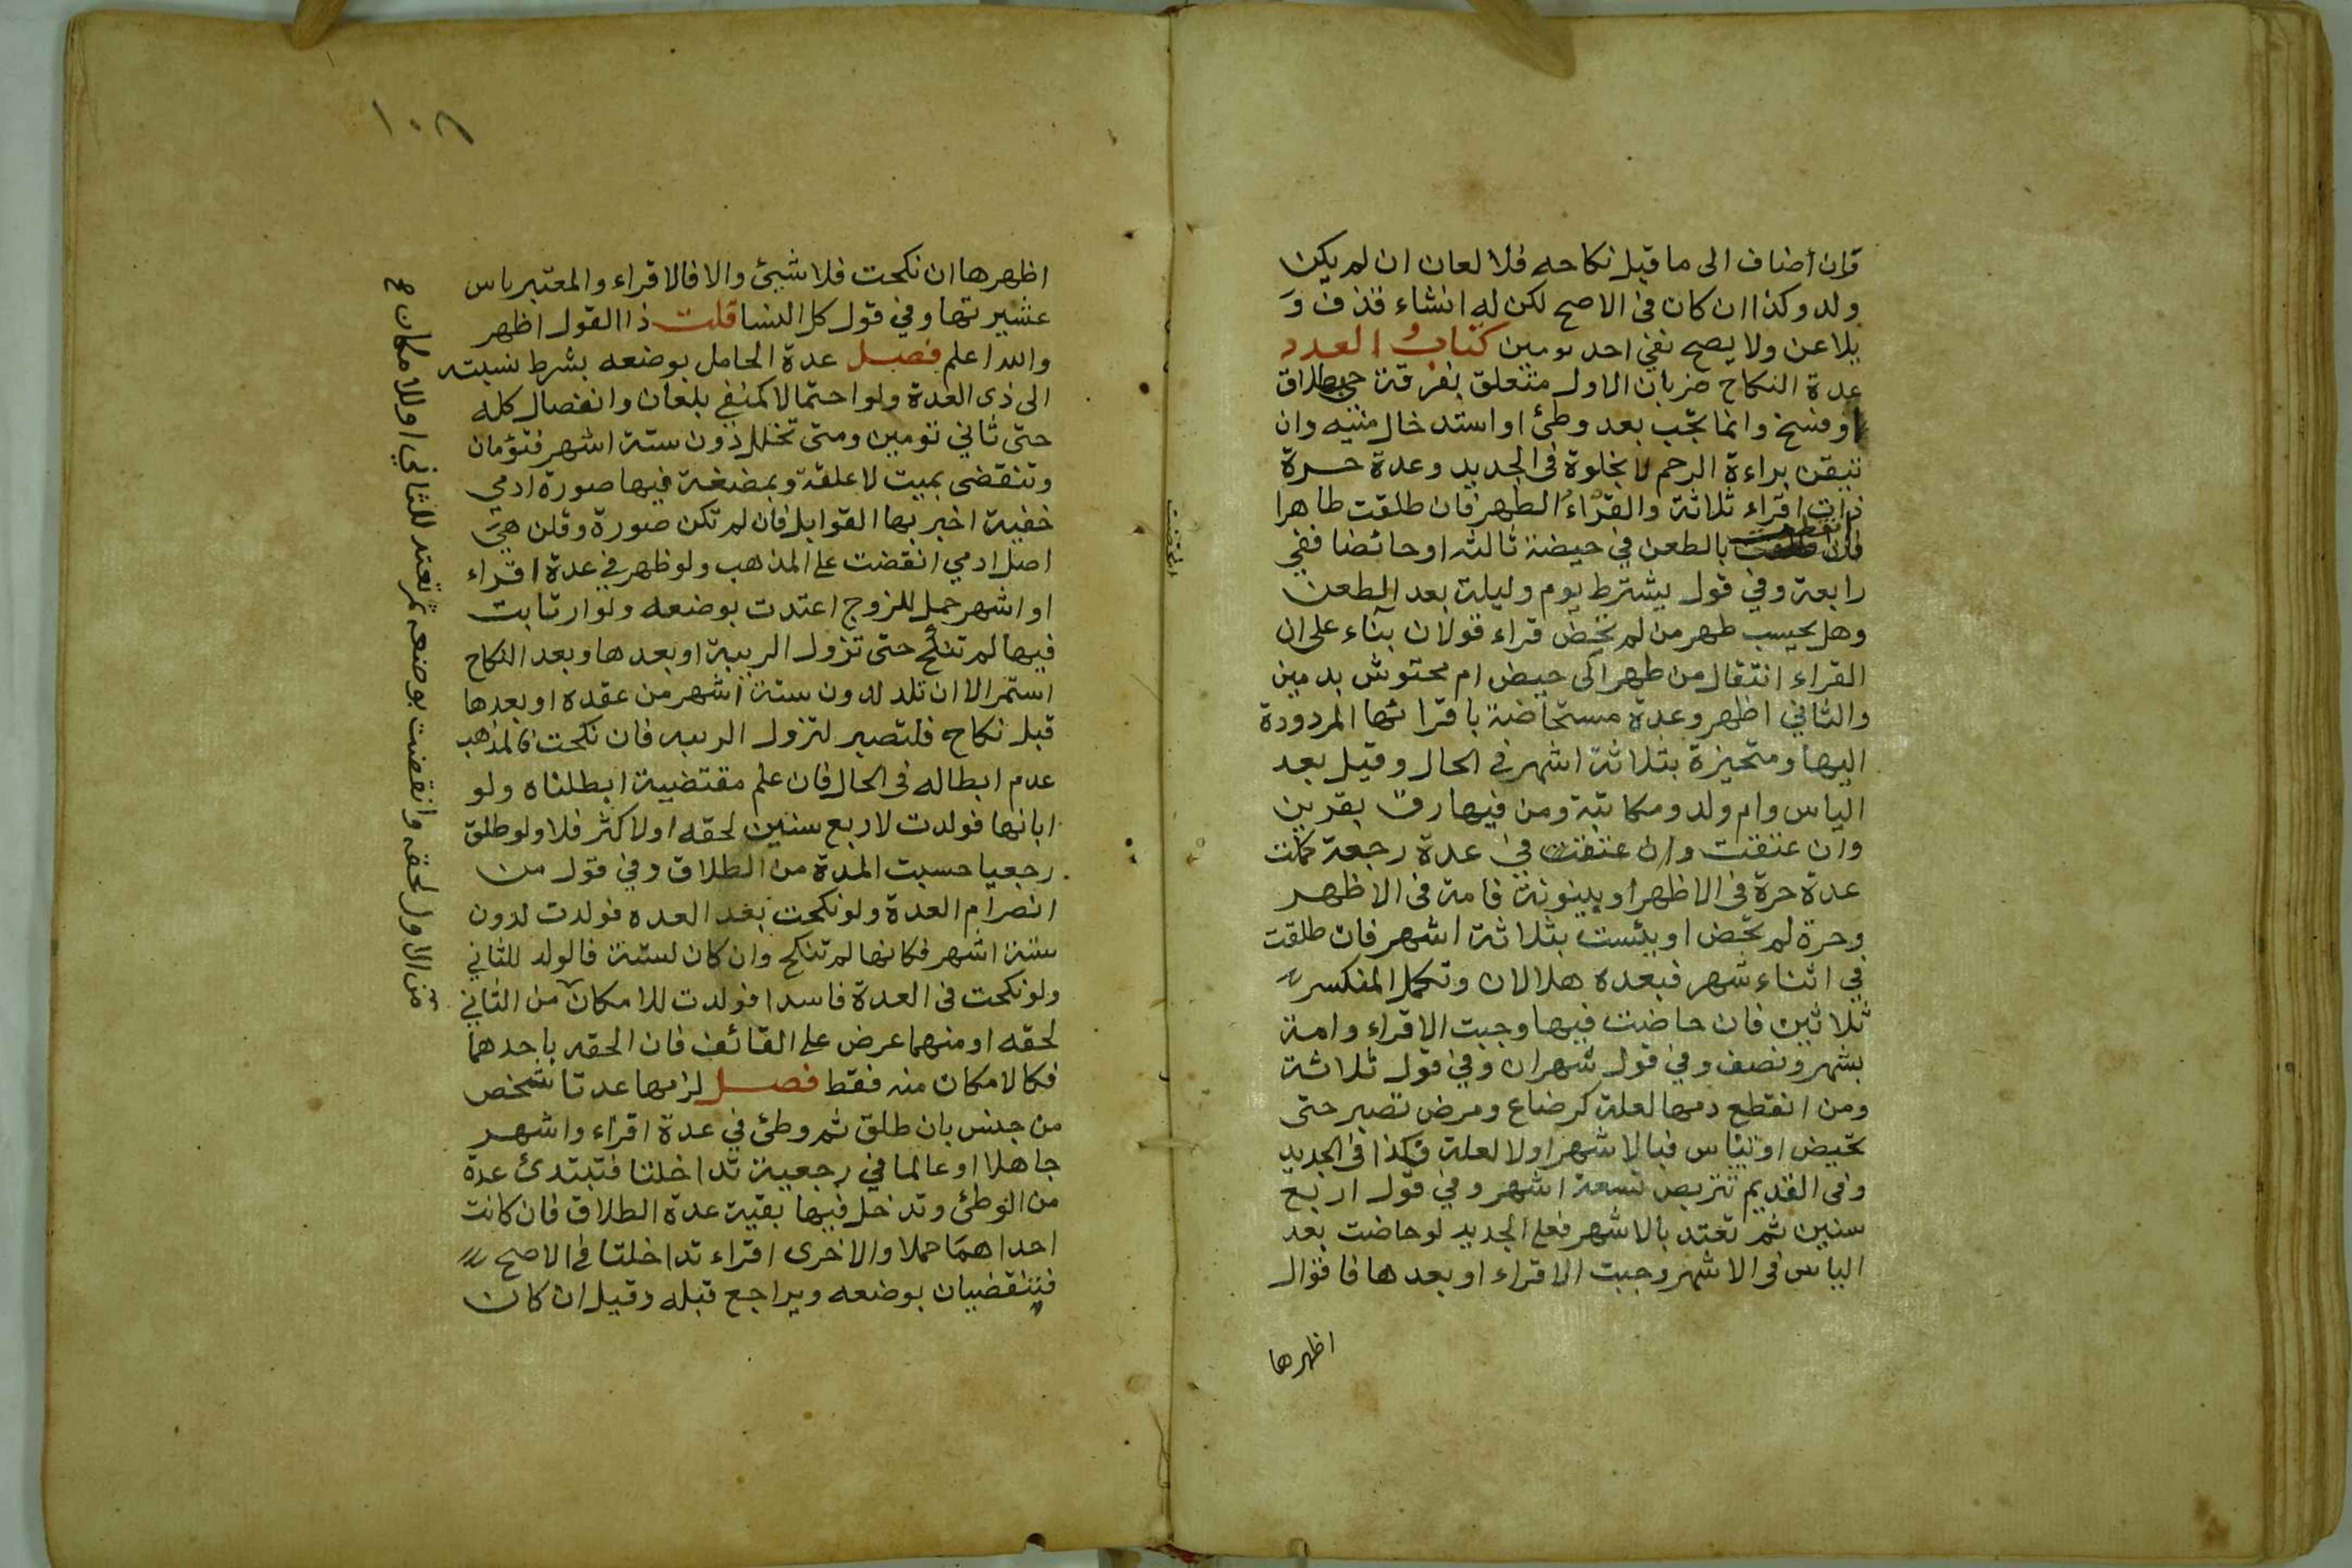 فان أضاف الى ما قبل نكاحه فلا لعان ان لم يكن
ولد وكذا ان كان فى الاصح لكن له انشاء قذف وَ
يلاعن ولا يصح نفي احد تومين كتابُ العدد
عدة النكاح ضربان الاول متعلق بفرقة حي بطلاق
او فسخ وانما تجب بعد وطئ او استدخال منيه وان
تيقن براءة الرحم لا بخلوة فى الجديد وعدة حرة
ذات اقراء ثلاثة والقراء الطهر فان طلقت طاهرا
انقضت بالطعن في حيضة ثالثه او حائضا ففي
رابعة وفي قول يشترط يوم وليلة بعد الطعن
وهل يحسب طهر من لم تحض قراء قولان بناء على ان
القراء انتقال من طهر الى حيض ام محتوش بدمين
والثاني اظهر وعدة مستحاضة باقرائها المردودة
اليها ومتحيرة بثلاثة اشهر في الحال وقيل بعد
الياس وام ولد ومكاتبة ومن فيها رق بقرين
وان عتقت وان عتقت في عدة رجعة كملت
عدة حرة فى الاظهر او بينونة فامة فى الاظهر
وحرة لم تحض او يئست بثلاثة اشهر فان طلقت
في اثناء شهر فبعده هلالان وتكمل المنكسر
ثلاثين فان حاضت فيها وجبت الاقراء وامة
بشهر ونصف وفي قول شهران وفي قول ثلاثة
ومن انقطع دمها لعلة كرضاع ومرض تصبر حتى
تحيض او تيئاس فبالاشهر اولا لعلة فكذا فى الجديد
وفى القديم تتربص تسعة اشهر وفي قول اربع
سنين ثم تعتد بالاشهر فعلى الجديد لو حاضت بعد
الياس فى الاشهر وجبت الاقراء او بعدها فاقوال
اظهرها
١٠٨
اظهرها ان نكحت فلا شيئ والا فالاقراء والمعتبر ياس
عشيرتها وفي قول كل النسا قلت ذا القول اظهر
والله اعلم فصل عدة الحامل بوضعه بشرط نسبته
الى ذى العدة ولو احتمالا كمنفي بلعان وانفصال كله
حتى ثاني تومين ومتى تخلل دون ستة اشهر فتؤمان
وتنقضى بميت لا علقة وبمضغة فيها صورة ادمي
خفية اخبر بها القوابل فان لم تكن صورة وقلن هي
اصل ادمي انقضت على المذهب ولو ظهر في عدة اقراء
او اشهر حمل للزوج اعتدت بوضعه ولو ارتابت
فيها لم تنكح حتى تزول الريبة او بعدها وبعد النكاح
استمر الا ان تلد لدون ستة اشهر من عقده او بعدها
قبل نكاح فلتصبر لتزول الريبه فان نكحت فالمذهب
عدم ابطاله فى الحال فان علم مقتضيية ابطلناه ولو
ابانها فولدت لاربع سنين لحقه او لاكثر فلا ولو طلق
رجعيا حسبت المدة من الطلاق وفي قول من
انصرام العدة ولو نكحت بعد العده فولدت لدون
ستة اشهر فكانها لم تنكح وان كان لستة فالولد للثاني
ولو نكحت فى العدة فاسدا فولدت للامكان من الثاني
لحقه او منهما عرض على القائف فان الحقه باحدهما
فكالامكان منه فقط فصل لزمها عدتا شخص
من جنس بان طلق ثم وطئ في عدة اقراء واشهر
جاهلا او عالما في رجعية تداخلتا فتبتدئ عدة
من الوطئ وتدخل فيها بقية عدة الطلاق فان كانت
احداهما حملا والاخرى اقراء تداخلتا في الاصح
فتنقضيان بوضعه ويراجع قبله وقيل ان كان
من الاول لحقه وانقضت بوضعه ثم تعتد للثاني او للامكان